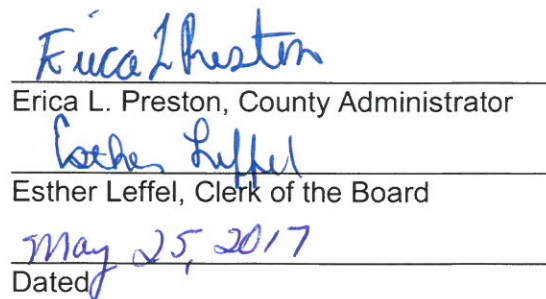 Erica L Preston
Erica L. Preston, County Administrator
Esther Leffel
Esther Leffel, Clerk of the Board
May 25, 2017
Dated